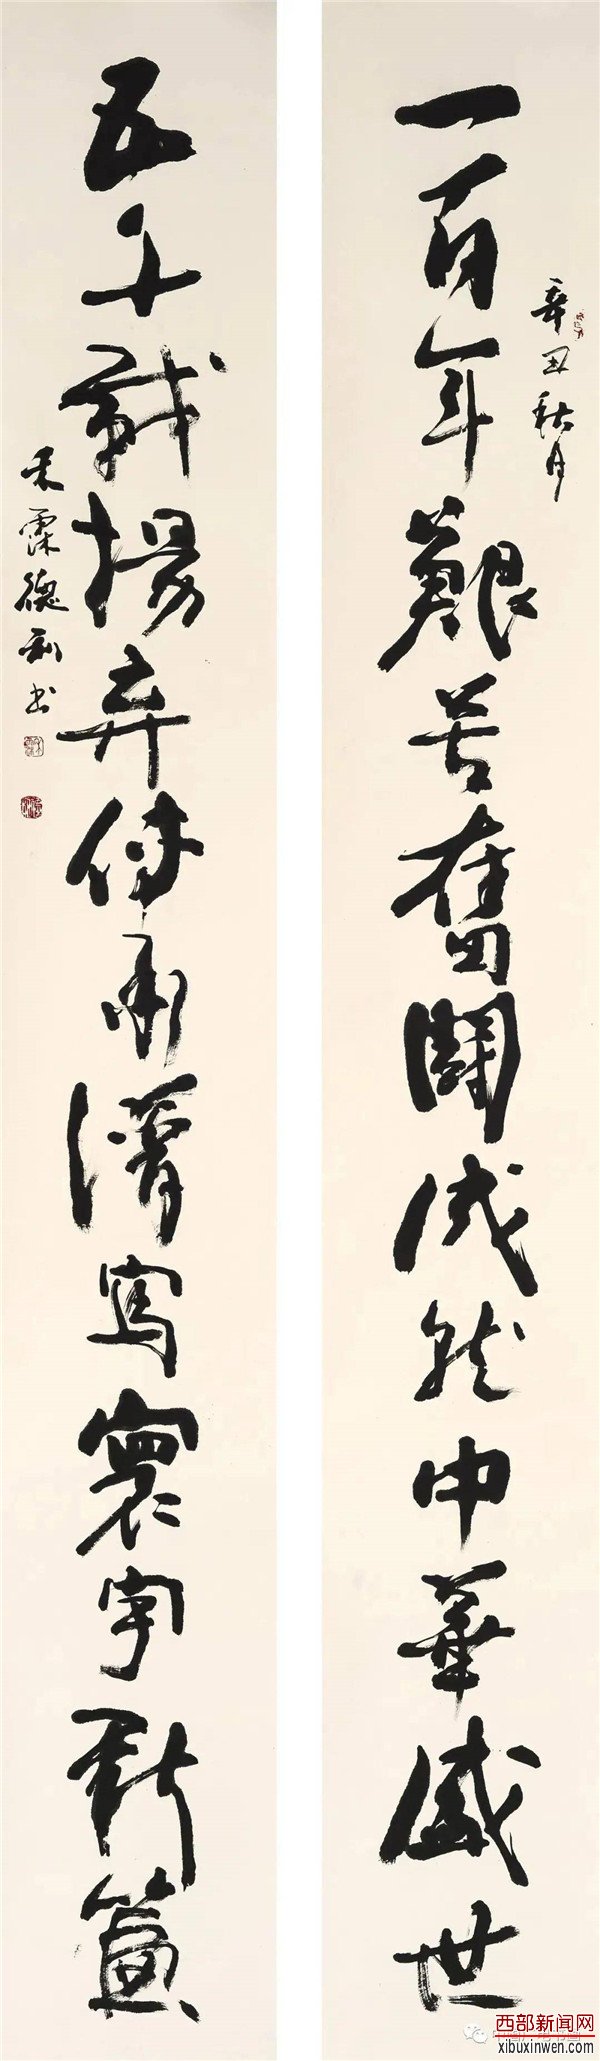 一百年艱苦奮鬪成就中華盛世
辛丑秋月
五千載揚弃傳承譜寫寰宇新篇
德利书
西部新闻网
xibuxinwen.com